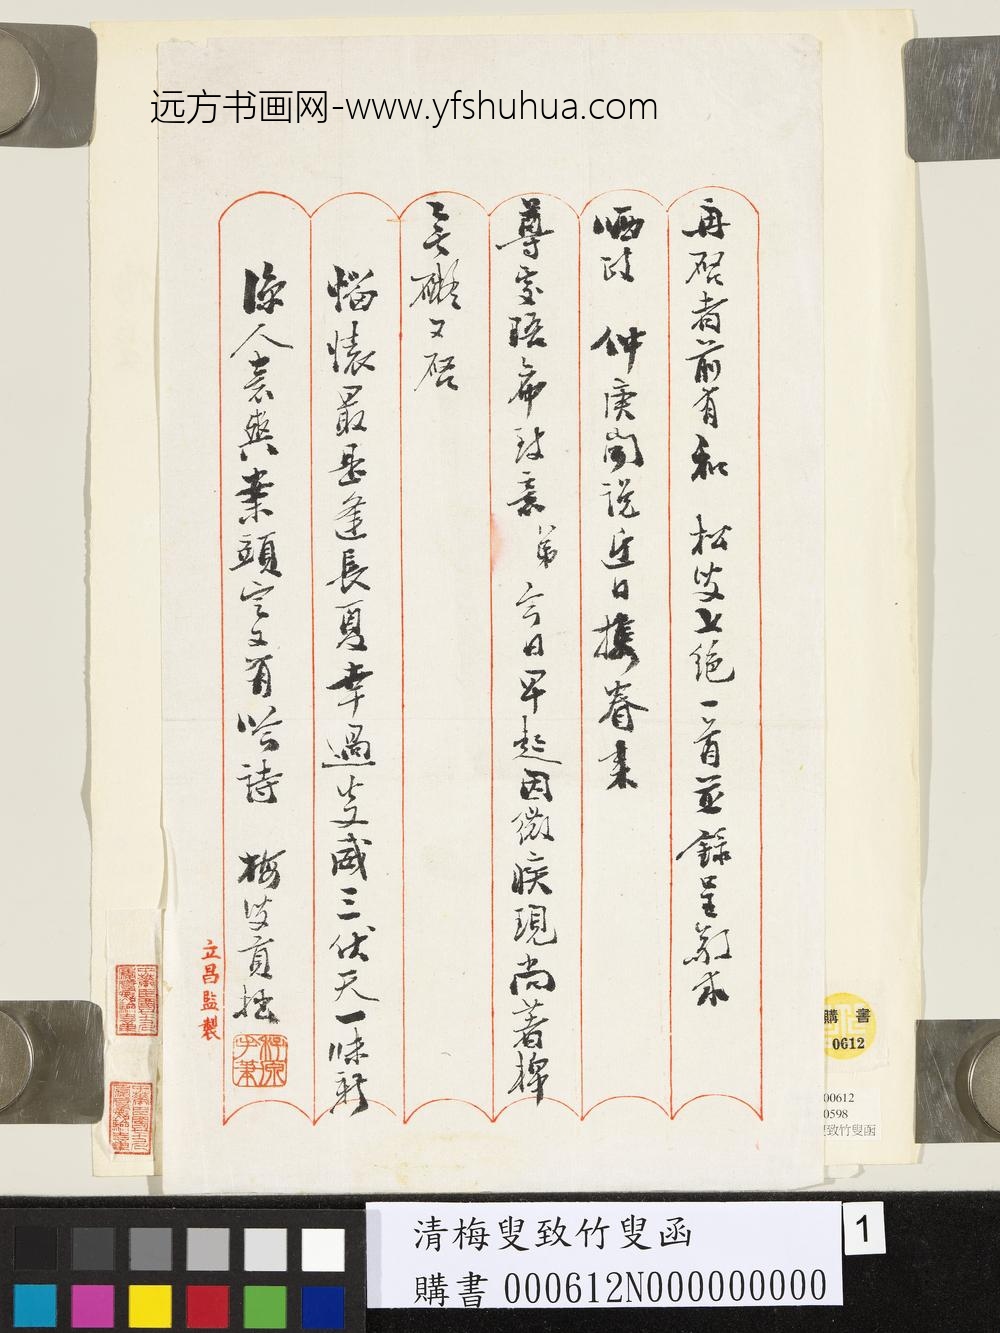 远方书画网-www.yfshuhua.com
再啓者前有和 松叟七絕一首並錄呈敬求
哂政 仲庚閣說近日攜眷來
尊處晤希致意弟今日早起因微疾現尚著棉
無礙又啓
惱懷最是逢長夏幸過炎威三伏天一味新
涼人意爽案頭定又有吟詩 梅叟貢拙
立昌監製
購書
0612
00612
0598
叟致竹叟函
清梅叟致竹叟函
購書 000612N000000000
1